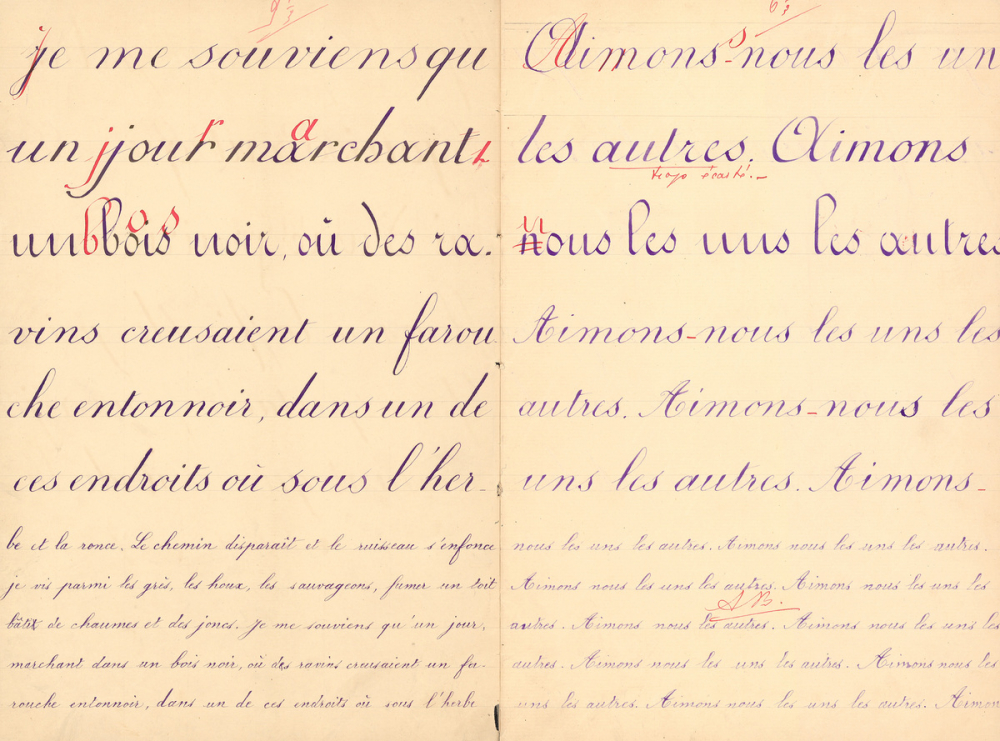 Je me souviens qu
un jjour marchant
un bbois noir, où des ra.
vins creusaient un farou
che entonnoir, dans un de
ces endroits où sous l'her-
be et la ronce. Le chemin disparaît et le ruisseau s'enfonce
je vis parmi les grès, les houx, les sauvageons, fumer un toit
bâtit de chaumes et des joncs. Je me souviens qu'un jour,
marchant dans un bois noir, où des ravins creusaient un fa-
rouche entonnoir, dans un de ces endroits où sous l'herbe
Aimons-nous les un
les autres. Aimons
trop écarté.-
nous les uns les autres
Aimons-nous les uns les
autres. Aimons-nous les
uns les autres. Aimons-
nous les uns les autres. Aimons nous les uns les autres.
Aimons nous les uns les autres. Aimons nous les uns les
AB.
autres. Aimons nous les autres. Aimons nous les uns les
autres. Aimons nous les uns les autres. Aimons nous les
uns les autres. Aimons nous les uns les autres. Aimons